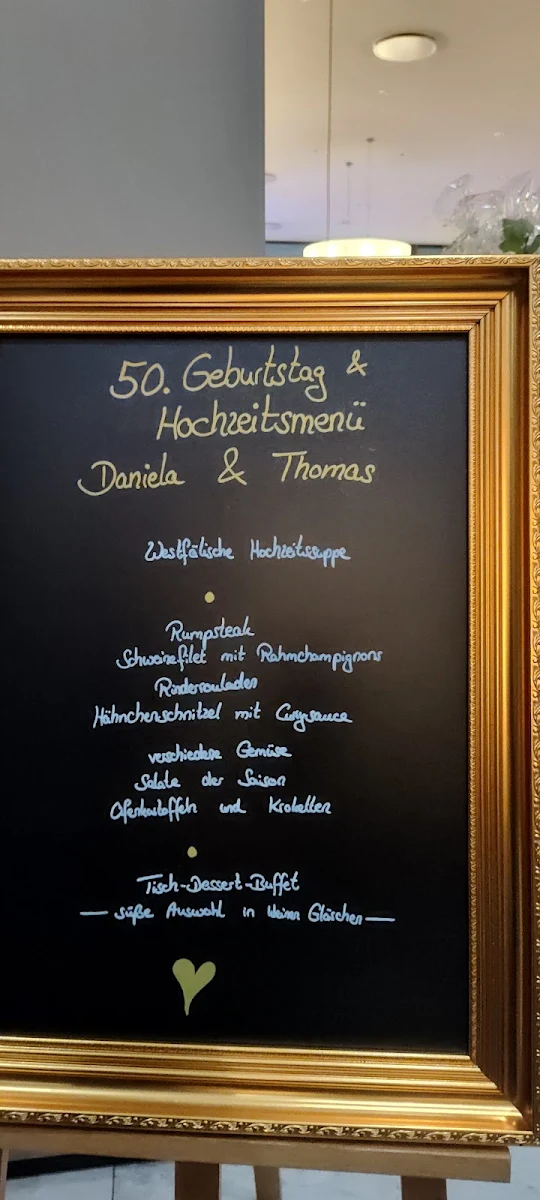 50. Geburtstag &
Hochzeitsmenü
Daniela & Thomas
Westfälische Hochzeitssuppe
Rumpsteak
Schweinefilet mit Rahmchampignons
Rinderrouladen
Hähnchenschnitzel mit Currysauce
verschiedene Gemüse
Salate der Saison
Ofenkartoffeln und Kroketten
Tisch-Dessert-Buffet
— süße Auswahl in kleinen Gläschen —